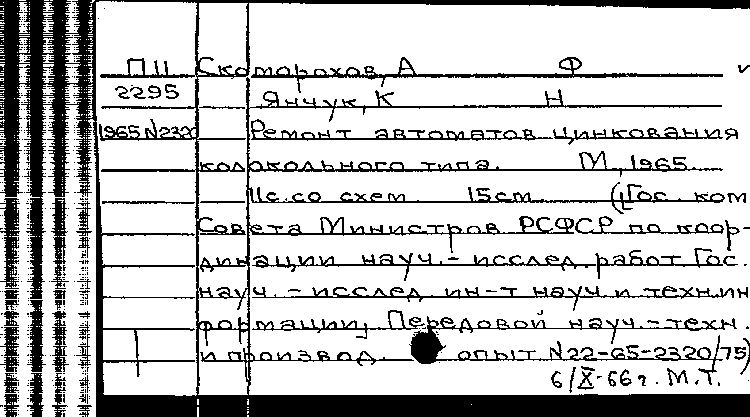 П11 Скоморохов, А Ф
2295 Янчук, К Н
1965 N2320 Ремонт автоматов цинкования
колокольного типа. М., 1965.
11с. со схем 15см (Гос. ком
Совета Министров РСФСР по коор-
динации науч.- исслед. работ Гос.
науч. - исслед ин-т науч. и техн. ин
формации) Передовой науч.-техн.
и производ. опыт N22-65-2320/75)
6/X-66г. М.Т.